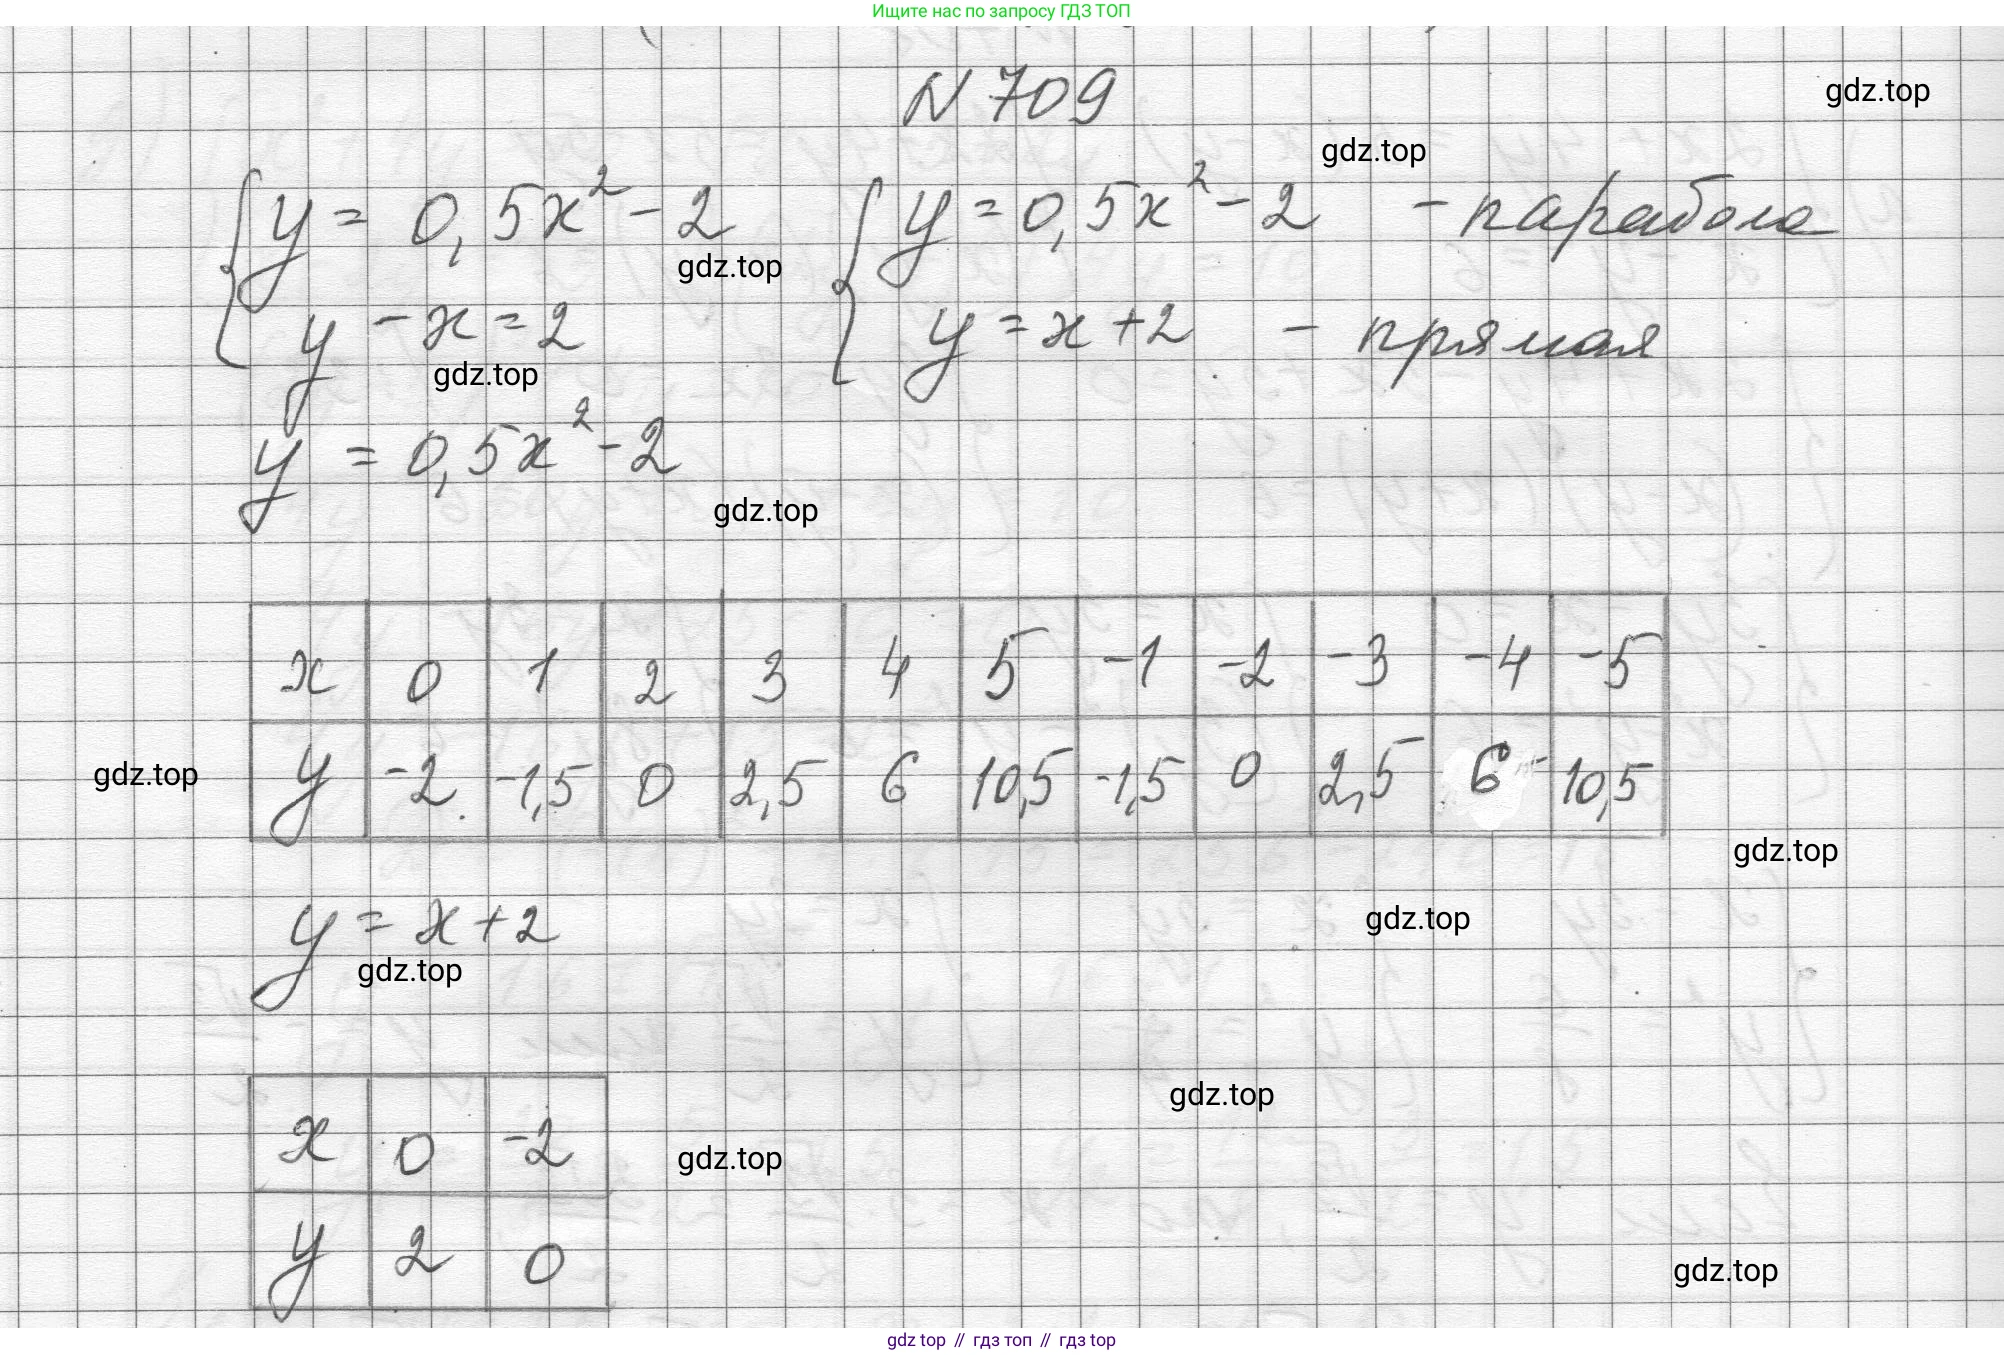 Ищите нас по запросу ГДЗ ТОП
N 709
gdz.top
gdz.top
{ y = 0,5x² - 2 { y = 0,5x² - 2 - парабола
gdz.top
y - x = 2 y = x + 2 - прямая
gdz.top
y = 0,5x² - 2
gdz.top
x 0 1 2 3 4 5 -1 -2 -3 -4 -5
y -2 -1,5 0 2,5 6 10,5 -1,5 0 2,5 6 10,5
gdz.top
gdz.top
y = x + 2
gdz.top
gdz.top
gdz.top
x 0 -2
gdz.top
y 2 0
gdz.top
gdz top // гдз топ // гдз top